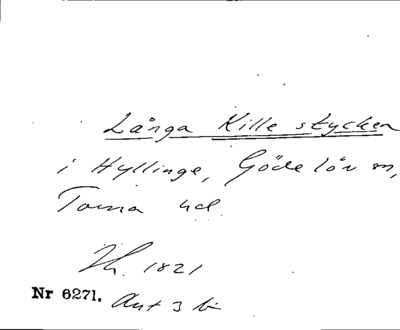 Långa Kille stycken
i Hyllinge, Gödelöv sn,
Torna hd.
1821
Nr 6271. Ant 3